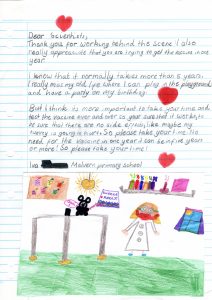 Dear Scientists,
Thank you for working behind the scene I also
really appreasiate that you are trying to get the vaccine in one
year.
I know that it normally takes more than 5 years,
I really miss my old life where I can play in the playground,
and have a party on my birthday!
But I think is more important to take your time and
test the vaccine over and over so your sure that it works, to
be sure that there are no side effects like maybe my
tummy is going to hurt. So please take your time. No
need for the vaccine in one year it can be in five years
or more! So please take your time!
Malvern primary school